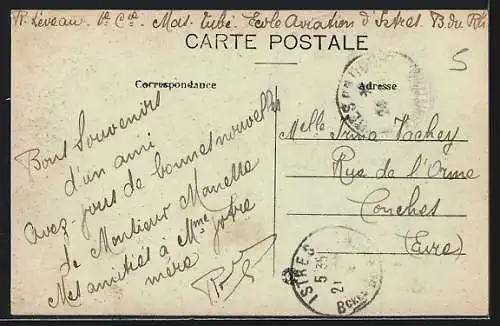 R. Leveau 1e Cie Mat. Ecole Aviation d'Istres B. du Rh
CARTE POSTALE
Correspondance
Adresse
5
Bons Souvenirs
d'un ami
Avez-vous de bonnes nouvelles
de Monsieur Marcelle
Mes amitiés à Mme votre
mère
Melle Irma Vachey
Rue de l'Orme
Conches
(Eure)
ISTRES
5
21